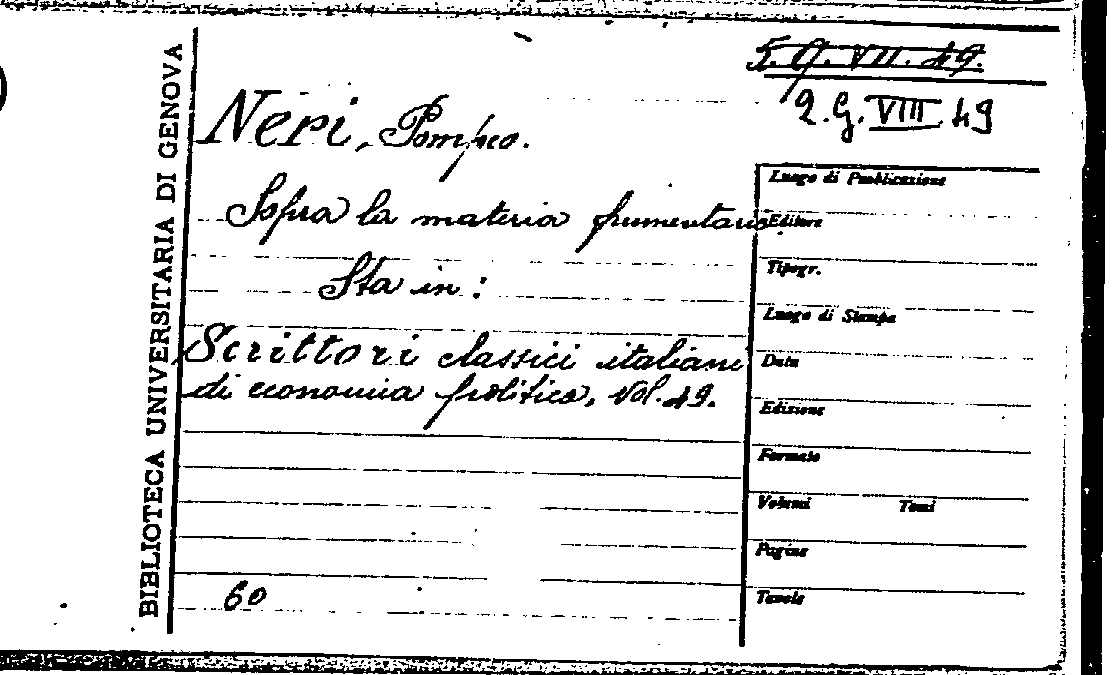 BIBLIOTECA UNIVERSITARIA DI GENOVA
5. G. VII. 49.
2. G. VIII 49
Neri, Pompeo.
Sopra la materia frumentaria.
Sta in:
Scrittori classici italiani
di economia politica, vol. 49.
60
Luogo di Pubblicazione
Editore
Tipogr.
Luogo di Stampa
Data
Edizione
Formato
Volumi Tomi
Pagine
Tavole